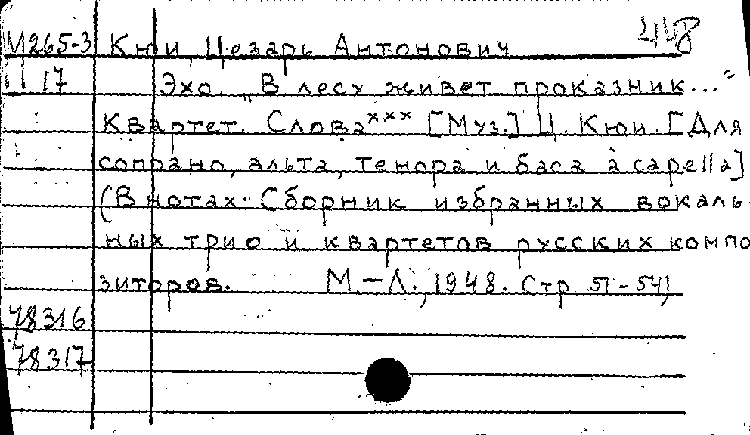 448
М265-3 Кюи, Цезарь Антонович
17 Эхо. „В лесу живет проказник..."
Квартет. Слова ххх [Муз.] Ц. Кюи. [Для
сопрано, альта, тенора и баса a capella]
(В нотах: Сборник избранных вокаль-
ных трио и квартетов русских компо
зиторов. М.-Л., 1948. Стр 51-54)
78316
78317